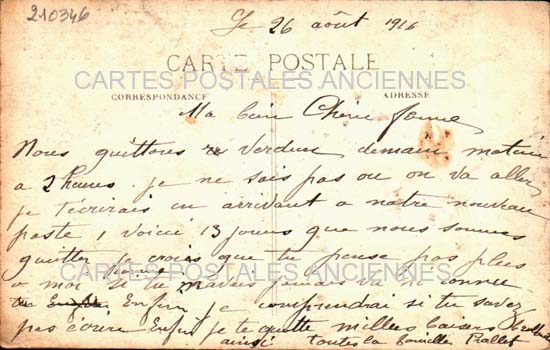 210346
Le 26 août 1916
CARTE POSTALE
CARTES POSTALES ANCIENNES
CORRESPONDANCE
ADRESSE
Ma bien Chère femme
Nous quittons Verdun demain matin
a 2 heures. je ne sais pas ou on va aller
je t'écrirais en arrivant a notre nouveau
poste 1 voici 13 jours que nous sommes
quitter je crois que tu pense pas plus
CARTES POSTALES ANCIENNES
a moi si tu mavais jamais connu
Enfin je comprendrai si tu savez
pas écrire Enfin je te quitte milles baisers
ainsi toutes la famille Rallet